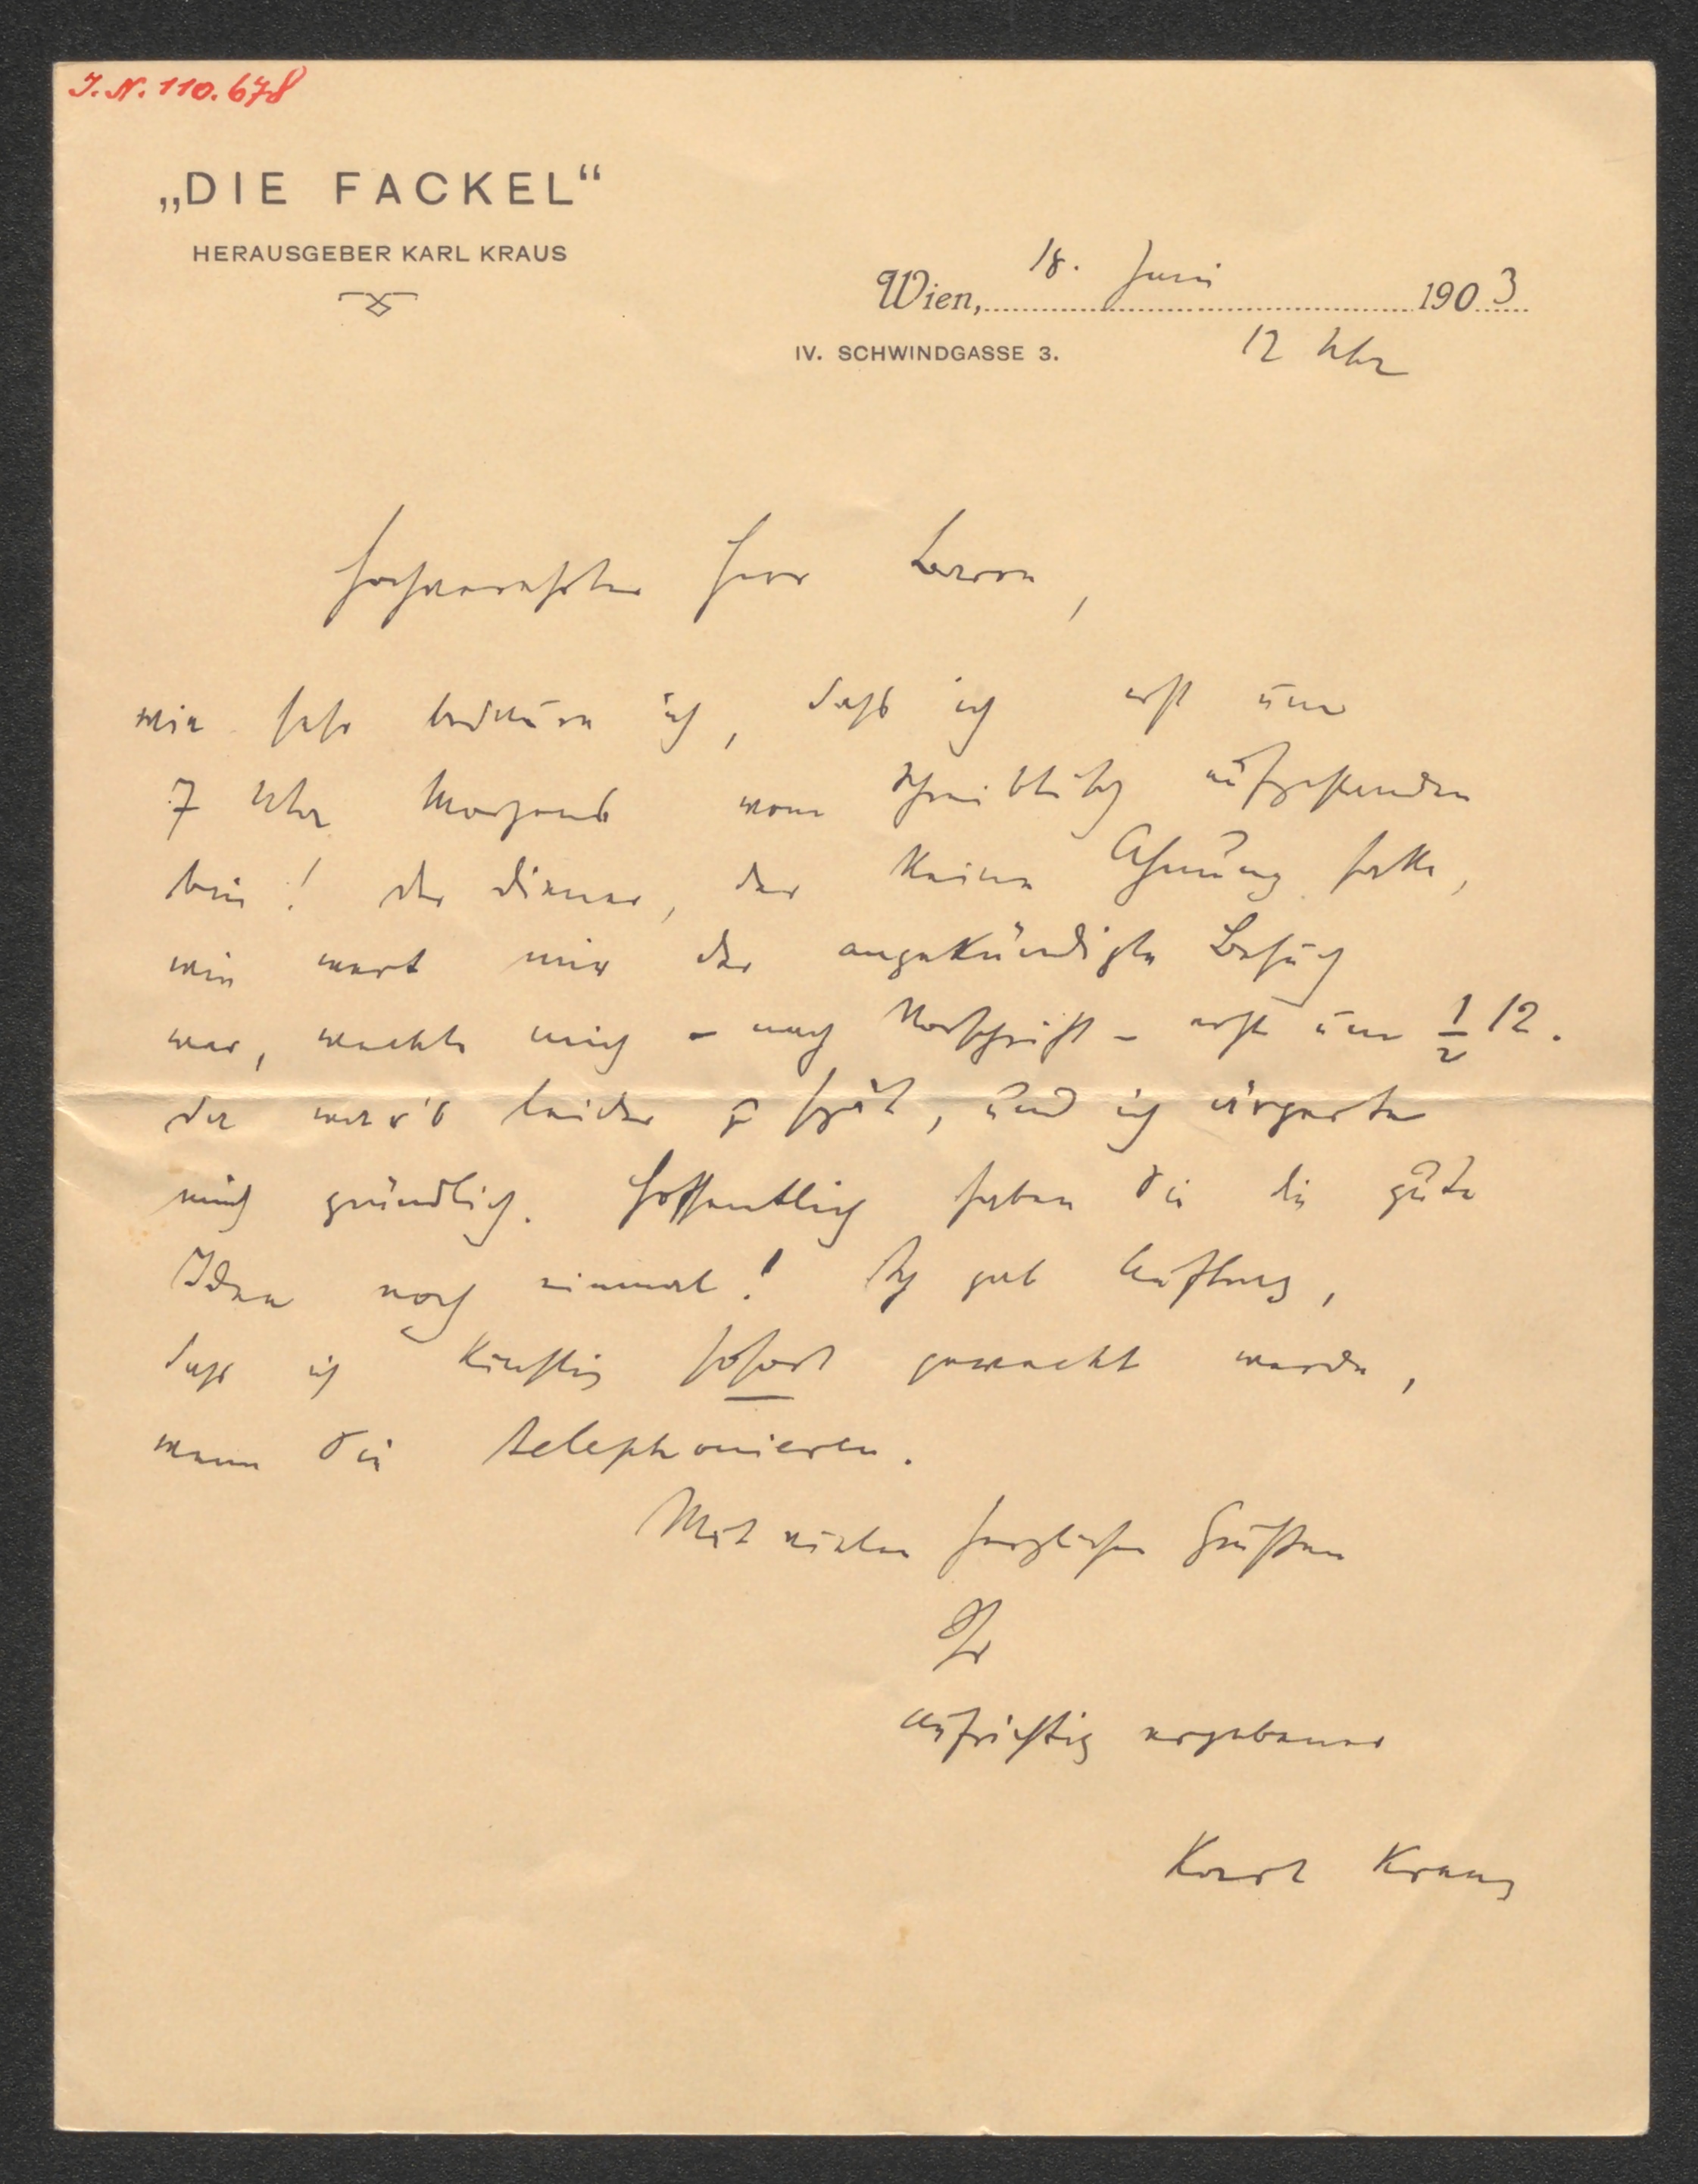 J. N. 110.678
„DIE FACKEL“
HERAUSGEBER KARL KRAUS
Wien, 18. Juni 1903
IV. SCHWINDGASSE 3.
12 Uhr
Hochverehrter Herr Baron,
wie sehr bedaure ich, dass ich erst um
7 Uhr Morgens vom Schreibtisch aufgestanden
bin! Der Diener, der keine Ahnung hatte,
wie wert mir der angekündigte Besuch
war, weckte mich – nach Vorschrift – erst um ½ 12.
Da war's leider zu spät, und ich ärgerte
mich gründlich. Hoffentlich haben Sie die gute
Idee noch einmal! Ich gab Auftrag,
dass ich künftig sofort geweckt werde,
wenn Sie telephonieren.
Mit vielen herzlichen Grüssen
Ihr
aufrichtig ergebener
Karl Kraus